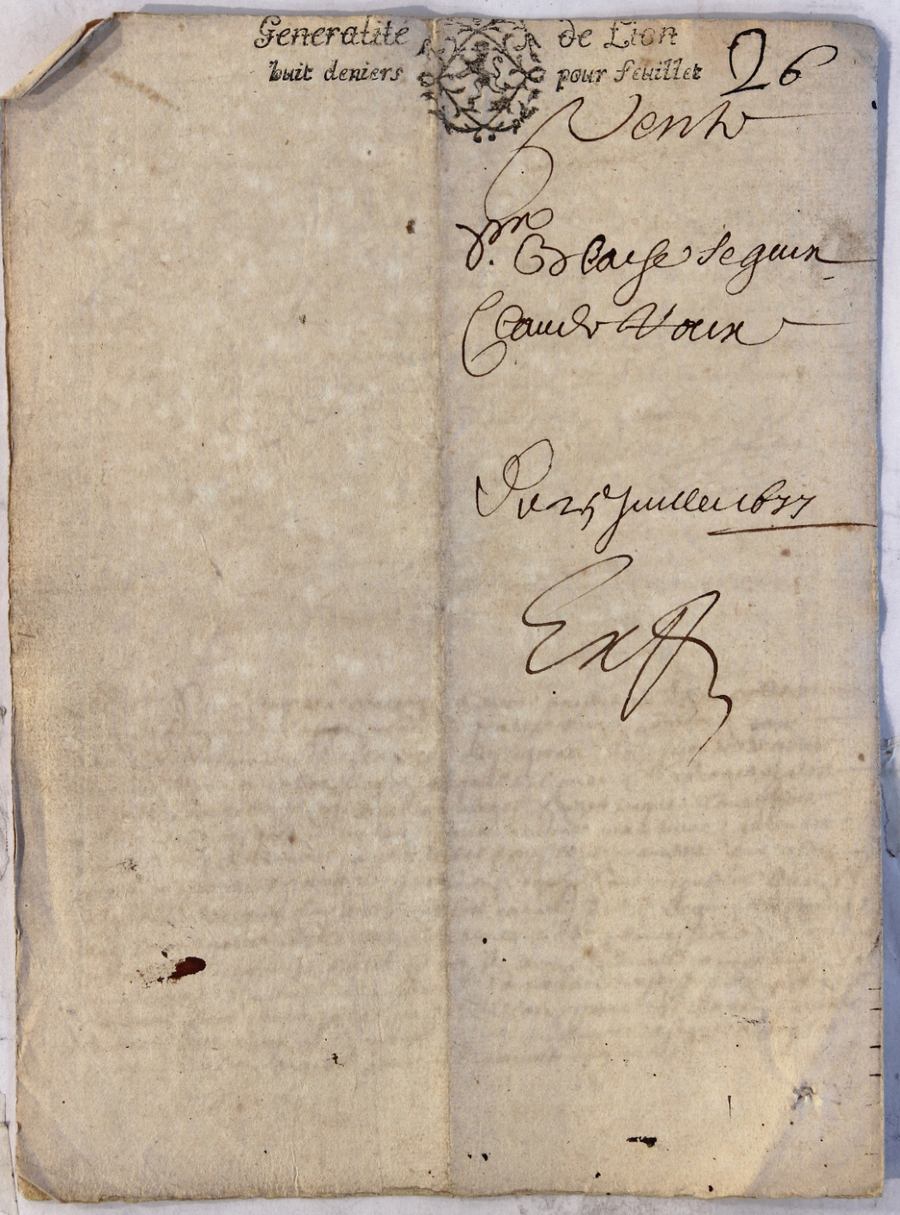 Generalité de Lion
huit deniers pour feuillet
26
Vente
pr. Blaise Seguin
Claude
Du 25 Juillet 1677
Exp